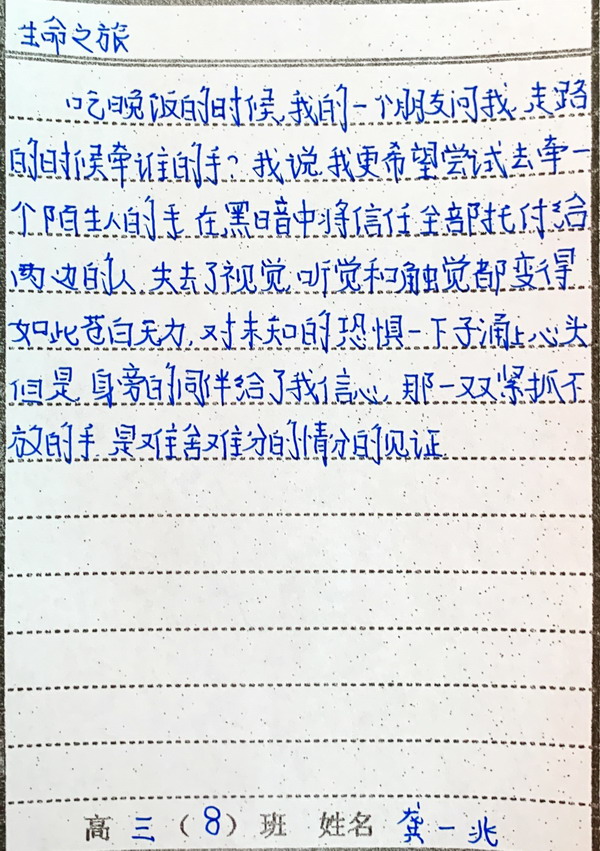 生命之旅
吃晚饭的时候,我的一个朋友问我,走路
的时候牵谁的手?我说,我更希望尝试去牵一
个陌生人的手,在黑暗中将信任全部托付给
两边的人,失去了视觉,听觉和触觉都变得
如此苍白无力,对未知的恐惧一下子涌上心头
但是,身旁的同伴给了我信心,那一双双紧抓不
放的手,是难舍难分的情分的见证
高三(8)班 姓名 龚一兆